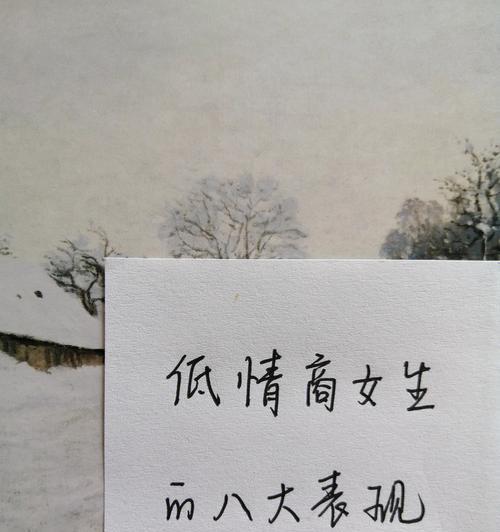 低情商女生
的八大表现